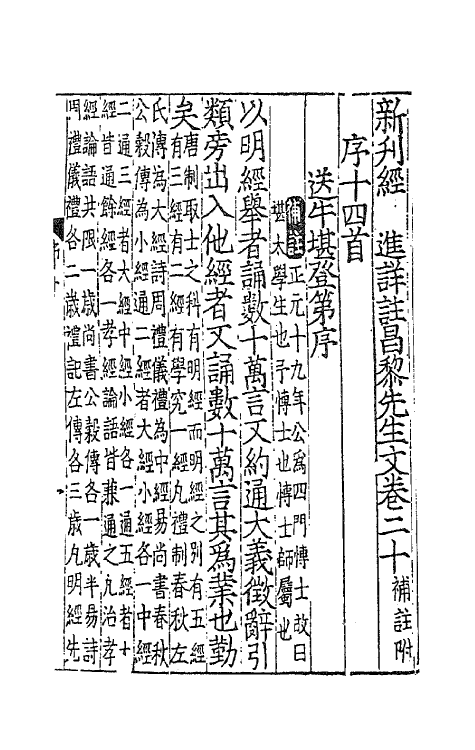 新刋經　進詳註昌黎先生文卷二十補註附
序十四首
送牛堪登第序
補註正元十九年公爲四門博士故曰
堪太學生也予博士也博士師屬也
以明經舉者誦數十萬言又約通大義徵辭引
類旁出入他經者又誦數十萬言其爲業也勤
矣唐制取士之科有明經而明經之别有五經
有三經有二經有學究一經凡禮制春秋左
氏傳為大經詩周禮儀禮為中經易尚書春秋
公榖傳為小經通二經者大經小經各一中經
二通三經者大經中經小經各一通五經者十
經皆通餘經各一孝經論語皆兼通之凢治孝
經論語共限一歲尚書公榖傳各一歲半易詩
周禮儀禮各二歲禮記左傳各三歲凢明經先